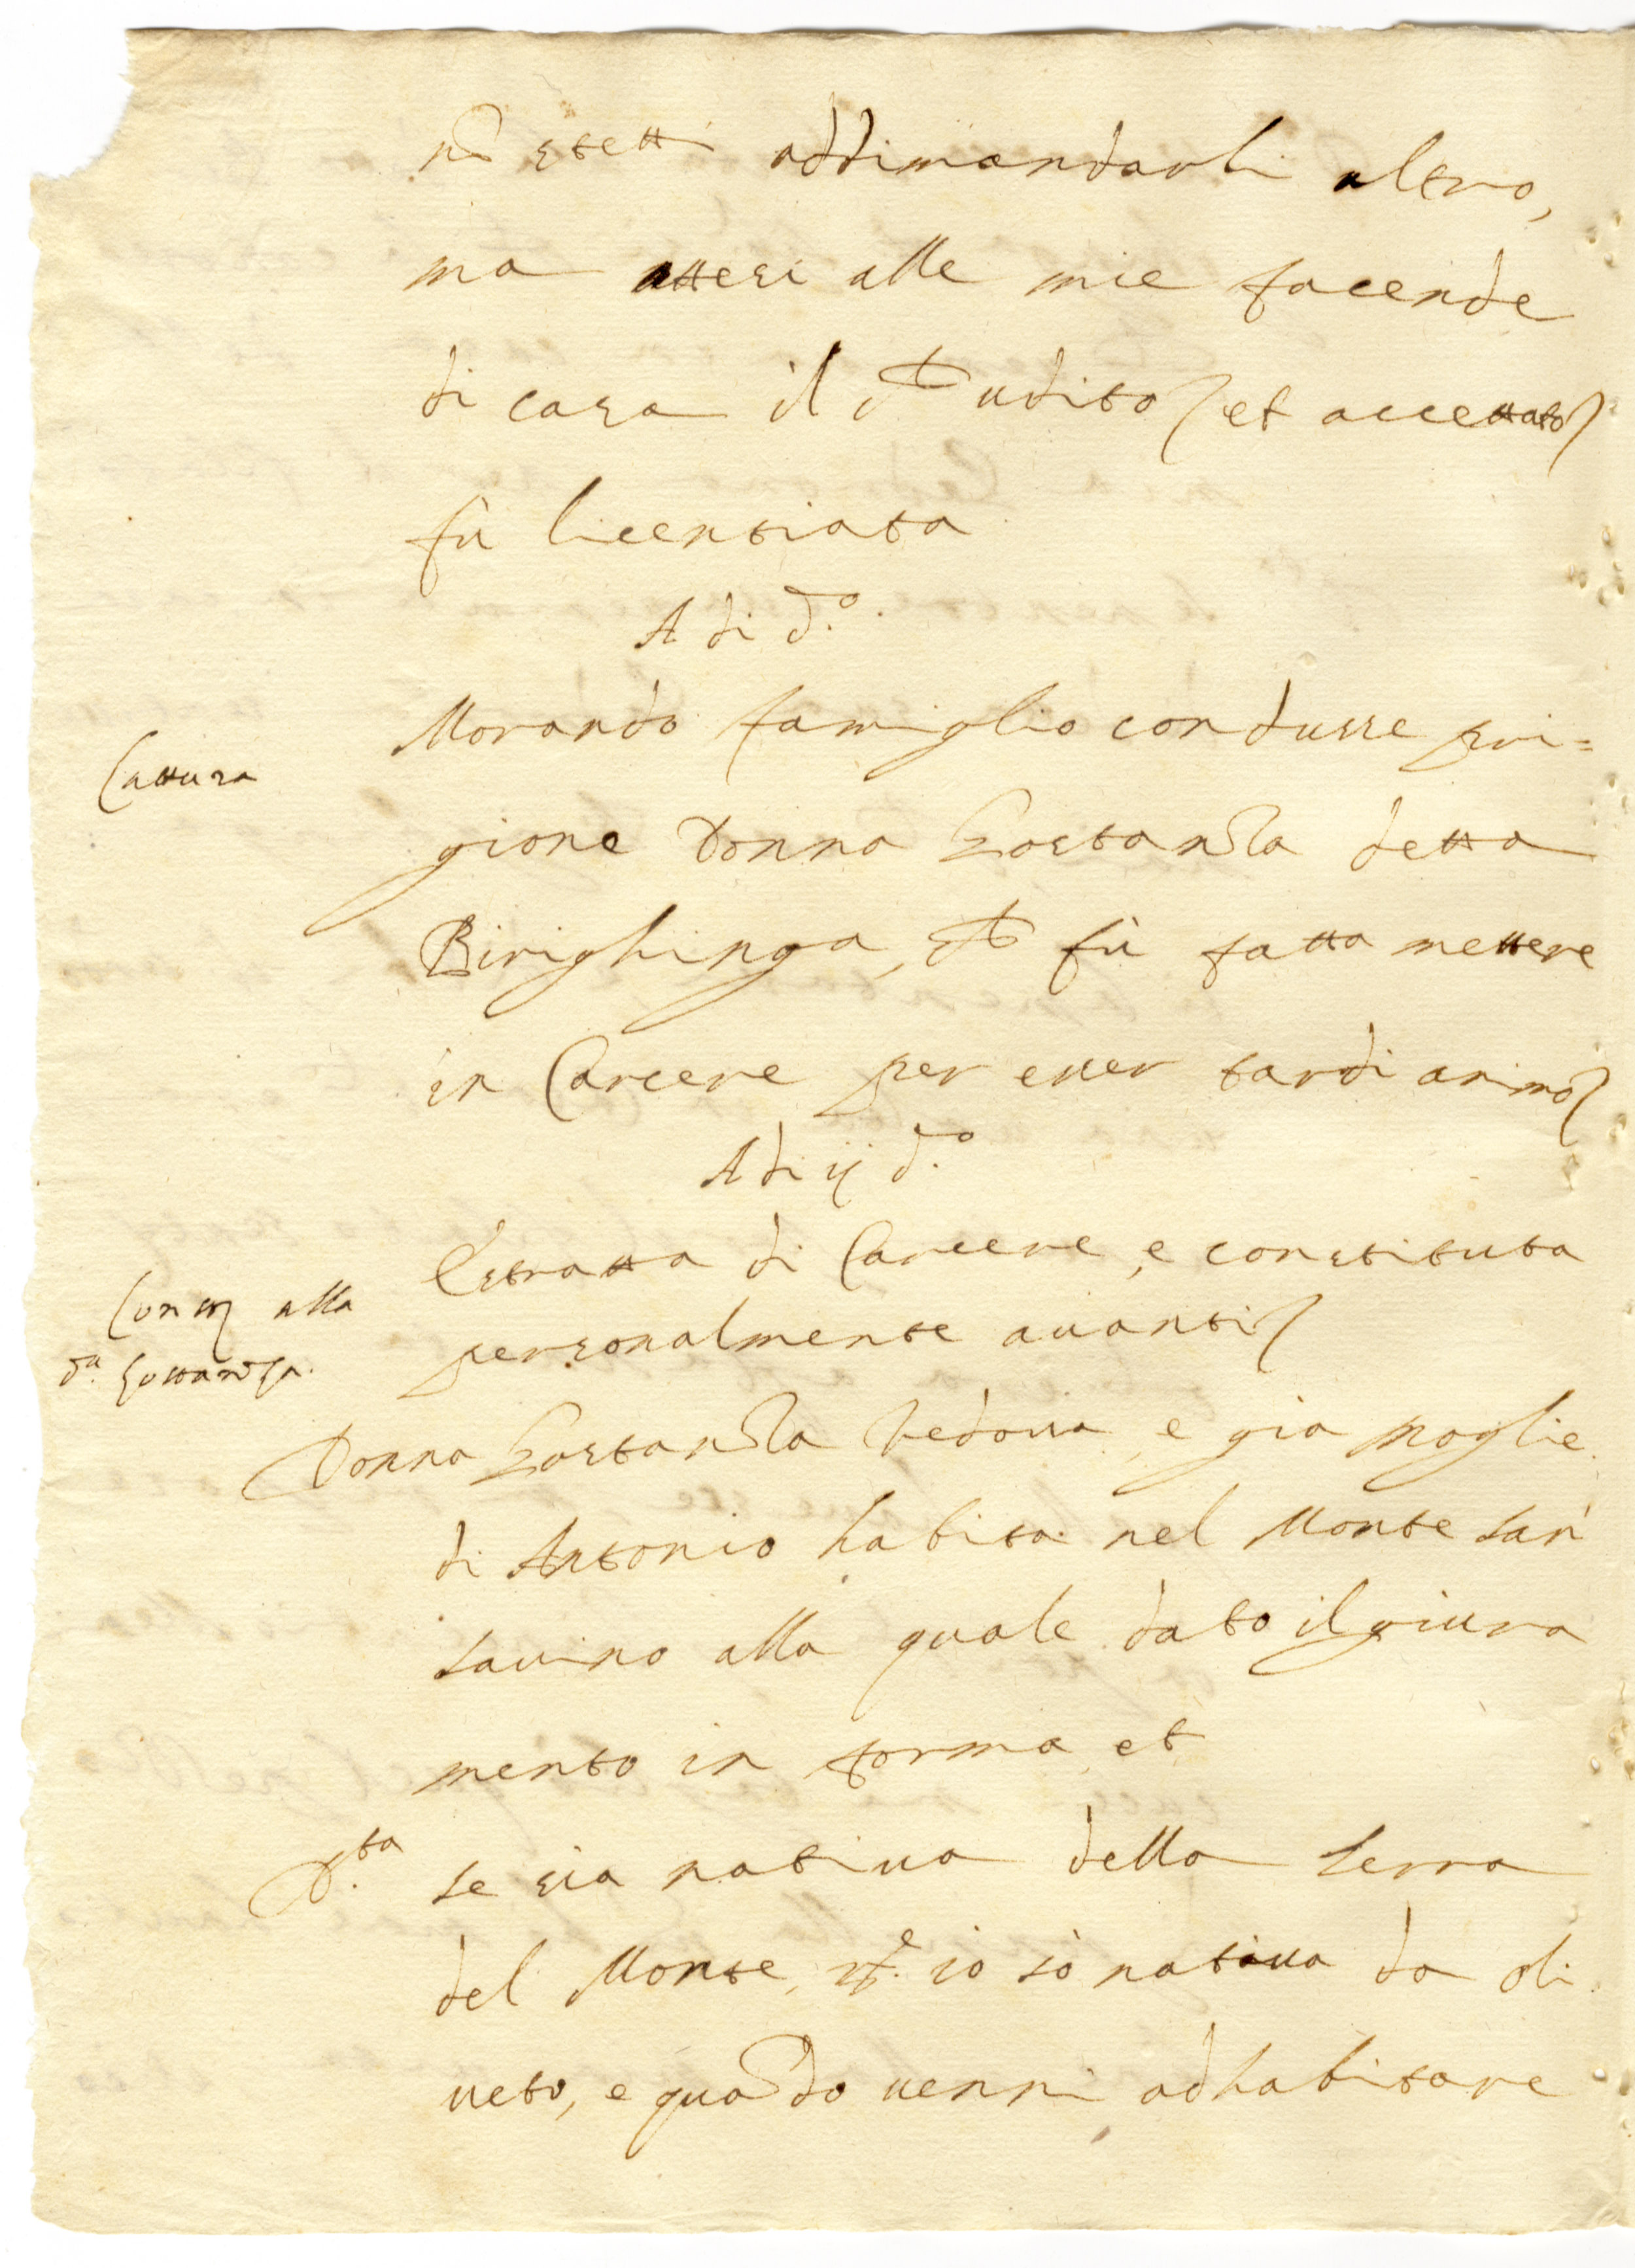 nõ stetti addimandarli altro,
ma attesi alle mie facende
di casa il ch udito et accettato
fù licentiata
A di d.º
Cattura
Morando famiglio condusse pri=
gione Donna Gostanza detta
Birighinga, et fù fatta mettere
in Carcere per esser tardi animo
A di ij d.º
Estratta di Carcere, e constituta
Cons alla
d.ª Gostanza.
personalmente auanti
Donna Gostanza Vedoua, e gia moglie
di Antonio habita nel Monte san
sauino alla quale dato il giura
mento in forma et
D.ta se sia natiua della terra
del Monte, r.e io sò natiua da oli
ueto, e quãdo uenni ad habitare